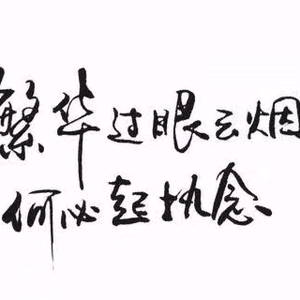 繁华过眼云烟
何必起执念